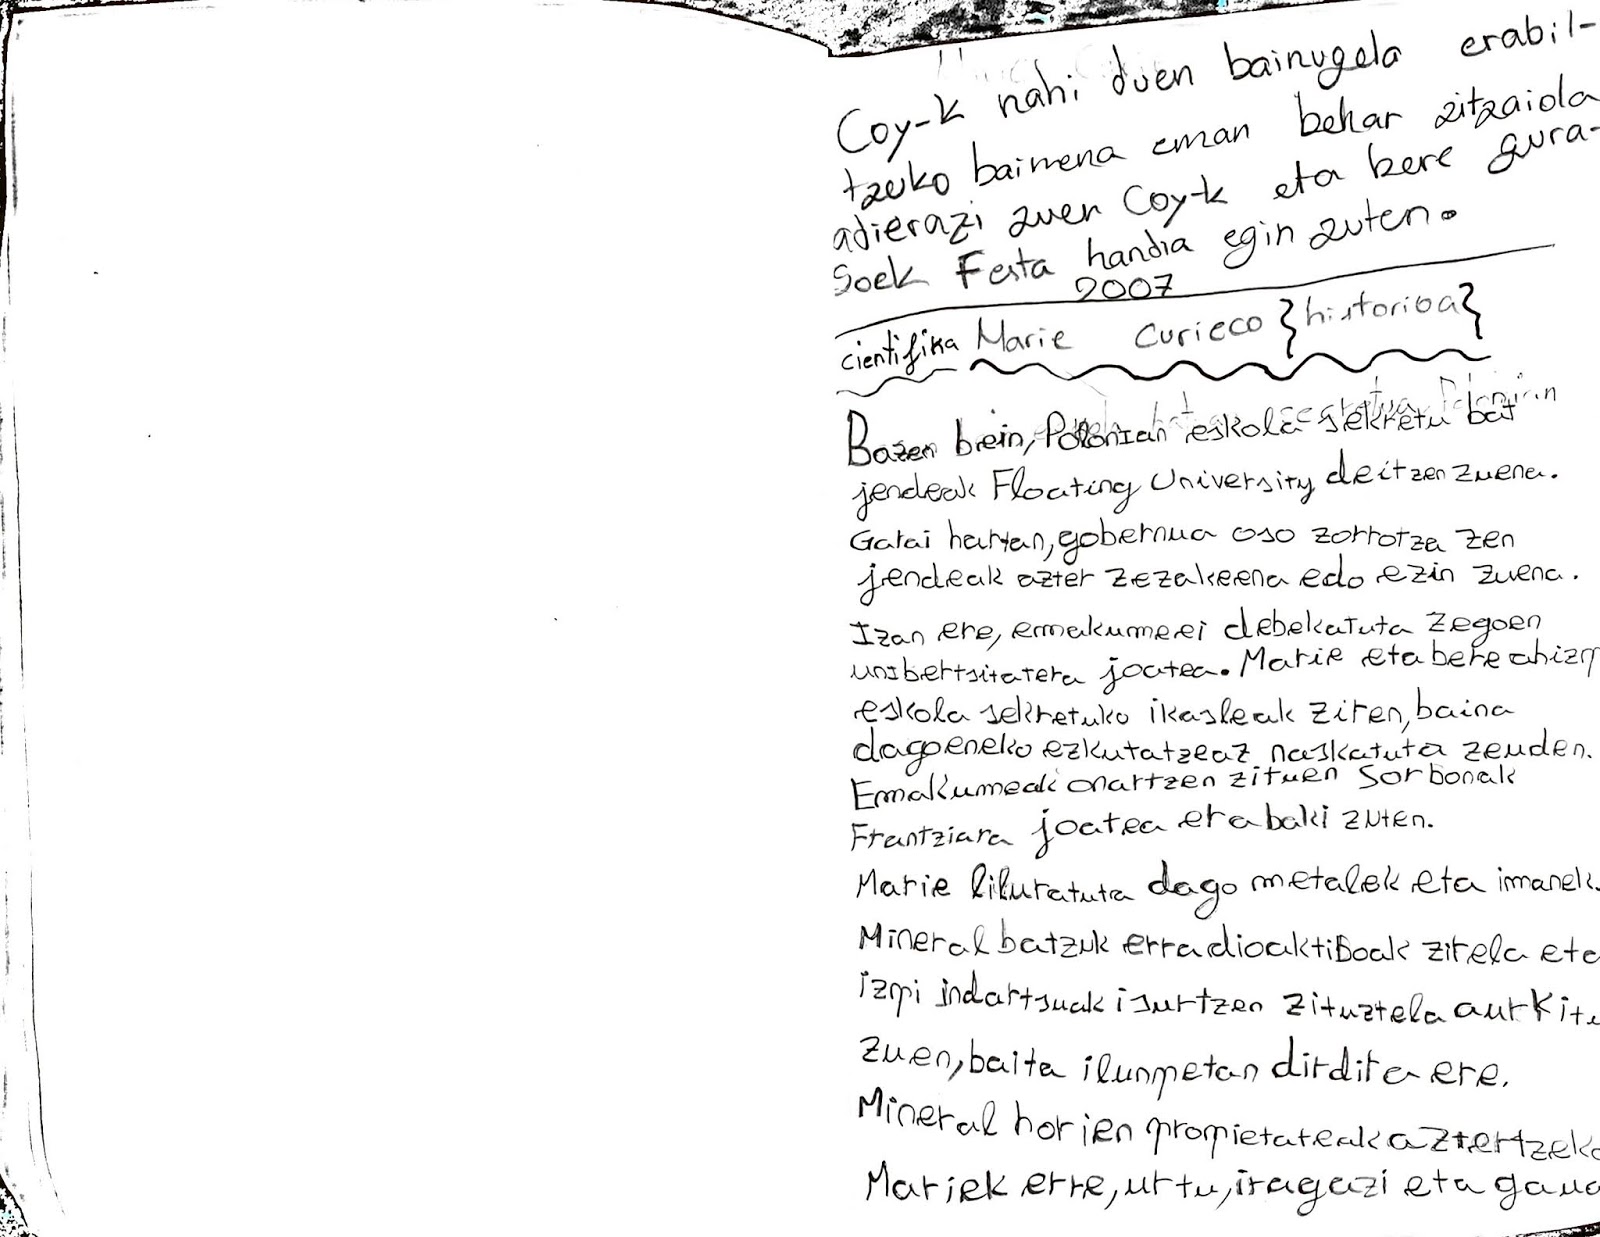 Coy-k nahi duen bainugela erabil-
tzeko baimena eman behar zitzaiola
adierazi zuen Coy-k eta bere gura-
soek Festa handia egin zuten.
2007
cientifika Marie Curieco {historioa}
Bazen bein, Polonian eskola sekretu bat
jendeak Floating University deitzen zuena.
Garai hartan, gobernua oso zorrotza zen
jendeak azter zezakeena edo ezin zuena.
Izan ere, emakumeei debekatuta zegoen
unibertsitatera joatea. Marie eta bere ahizp
eskola sekretuko ikasleak ziren, baina
dagoeneko ezkutatzeaz naskatuta zeuden.
Emakumeak onartzen zituen Sorbonak
Frantziara joatea erabaki zuten.
Marie liluratuta dago metalek eta imanek.
Mineral batzuk erradioaktiboak zirela eta
izpi indartsuak isurtzen zituztela aurkitu
zuen, baita ilunpetan dirdira ere.
Mineral horien propietateak aztertzeko
Mariek erre, urtu, iragazi eta gaua